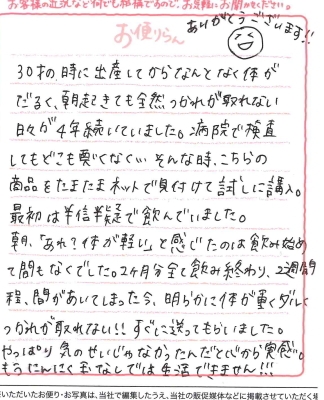 お客様の近況など何でも結構ですので、お気軽にお聞かせください。
ありがとうございます!!
お便りらん
30才の時に出産してからなんとなく体が
だるく、朝起きても全然つかれが取れない
日々が4年続いていました。病院で検査
してもどこも悪くなく… そんな時、こちらの
商品をたまたまネットで見付けて試しに購入。
最初は半信半疑で飲んでいました。
朝、「あれ?体が軽い」と感じたのは飲み始め
て間もなくでした。2ヶ月分全て飲み終わり、2週間
程、間があいてしまった今、明らかに体が重くダルく
つかれが取れない!! すぐに送ってもらいました。
やっぱり 気のせいじゃなかったんだと心から実感。
もうにんにく玉なしでは生活できません!!!
いただいたお便り・お写真は、当社で編集したうえ、当社の販促媒体などに掲載させていただく場